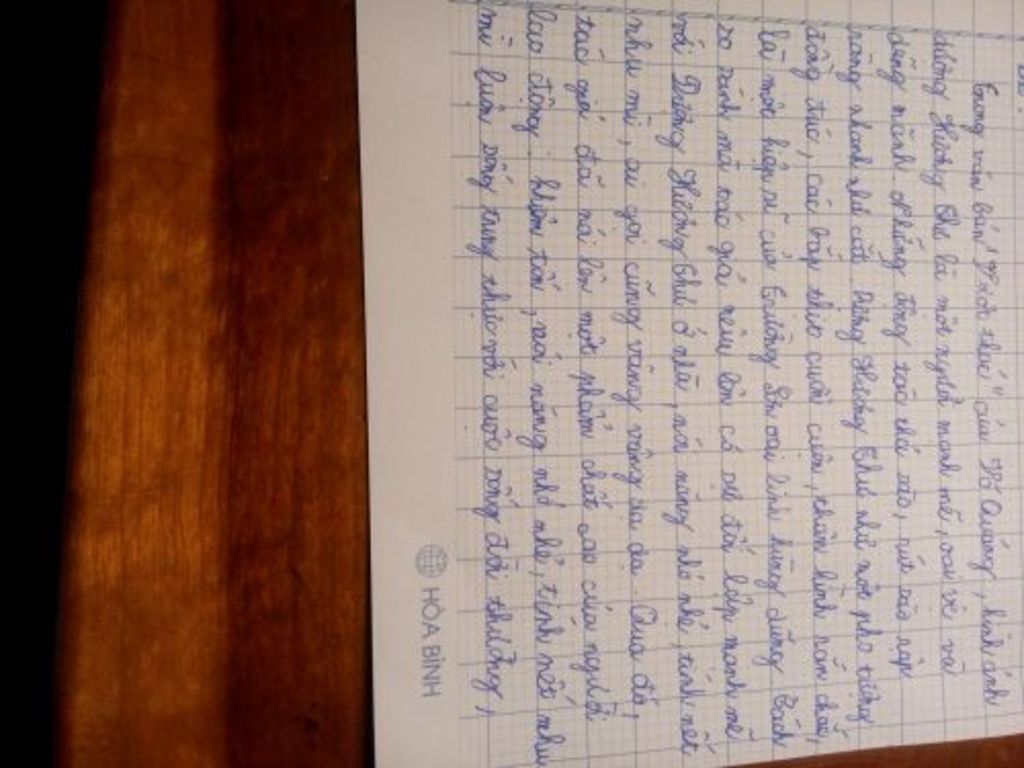 Bài
Trong văn bản "Vượt thác" của Võ Quảng, hình ảnh
dượng Hương Thư là một người mạnh mẽ, oai vệ và
dũng mãnh. Những động tác thả sào, rút sào rập
ràng nhanh như cắt. Dượng Hương Thư như một pho tượng
đồng đúc, các bắp thịt cuồn cuộn, thân hình rắn chắc,
là một hiệp sĩ của Trường Sơn oai linh hùng dũng. Cách
so sánh mà tác giả nêu lên có sự đối lập mạnh mẽ
với Dượng Hương Thư ở nhà, nói năng nhỏ nhẻ, tính nết
nhu mì, ai gọi cũng vâng vâng dạ dạ. Qua đó,
tác giả đã nói lên một phẩm chất của người
lao động: khiêm tốn, nói năng nhỏ nhẻ, tính nết nhu
mì luôn sống trung thực với cuộc sống đời thường,
HÒA BÌNH